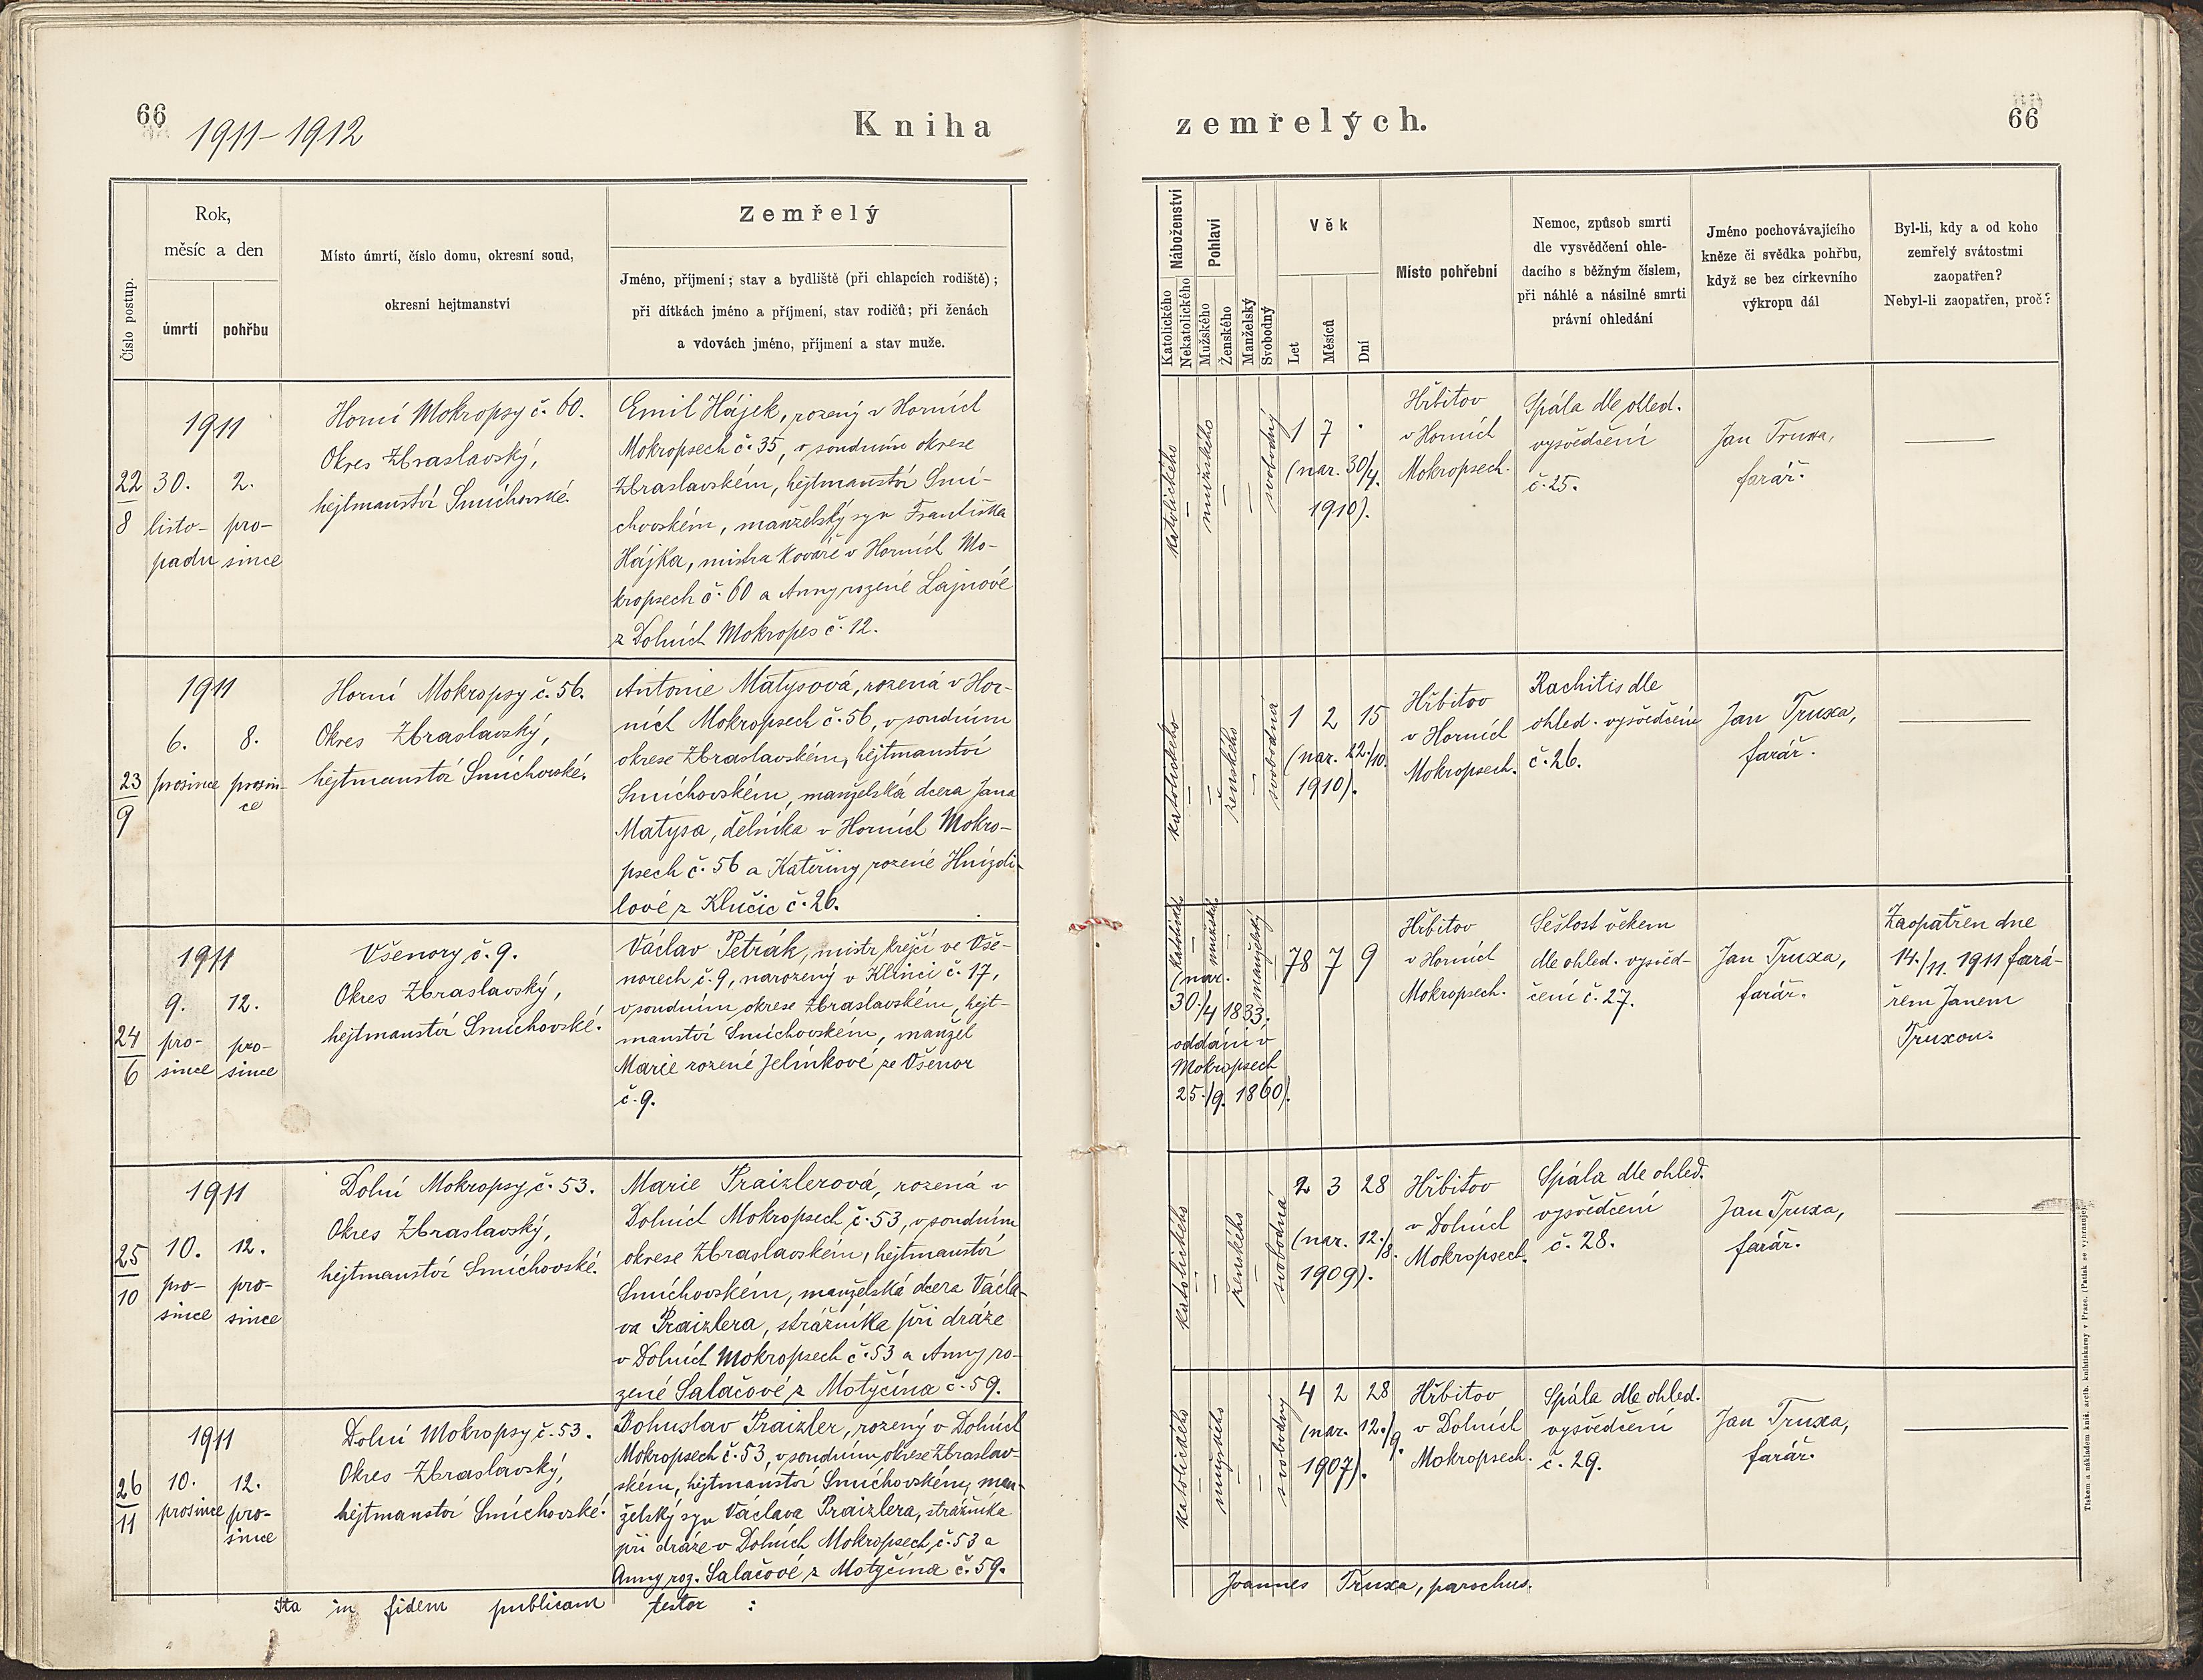 66
1911–1912
Kniha
zemřelých.
66
Číslo postup.
Rok,
měsíc a den
úmrtí
pohřbu
Místo úmrtí, číslo domu, okresní soud,
okresní hejtmanství
Zemřelý
Jméno, příjmení; stav a bydliště (při chlapcích rodiště);
při dítkách jméno a příjmení, stav rodičů; při ženách
a vdovách jméno, příjmení a stav muže.
Náboženství
Katolického
Nekatolického
Pohlaví
Mužského
Ženského
Manželský
Svobodný
Věk
Let
Měsíců
Dní
Místo pohřební
Nemoc, způsob smrti
dle vysvědčení ohle-
dacího s běžným číslem,
při náhlé a násilné smrti
právní ohledání
Jméno pochovávajícího
kněze či svědka pohřbu,
když se bez církevního
výkropu dál
Byl-li, kdy a od koho
zemřelý svátostmi
zaopatřen?
Nebyl-li zaopatřen, proč?
22
8
1911
30.
listo-
padu
2.
pro-
since
Horní Mokropsy č. 60.
Okres Zbraslavský,
hejtmanství Smíchovské.
Emil Hájek, rozený v Horních
Mokropsech č. 35, v soudním okrese
Zbraslavském, hejtmanství Smí-
chovském, manželský syn Františka
Hájka, mistra kováře v Horních Mo-
kropsech č. 60 a Anny rozené Lajnové
z Dolních Mokropes č. 12.
katolického
mužského
svobodný
1 7 .
(nar. 30/4.
1910).
Hřbitov
v Horních
Mokropsech.
Spála dle ohled.
vysvědčení
č. 25.
Jan Truxa,
farář.
23
9
1911
6.
prosince
8.
prosin-
ce
Horní Mokropsy č. 56.
Okres Zbraslavský,
hejtmanství Smíchovské.
Antonie Matysová, rozená v Hor-
ních Mokropsech č. 56, v soudním
okrese Zbraslavském, hejtmanství
Smíchovském, manželská dcera Jana
Matysa, dělníka v Horních Mokro-
psech č. 56 a Kateřiny rozené Hnízdi-
lové z Klučic č. 26.
katolického
ženského
svobodná
1 2 15
(nar. 22./10.
1910).
Hřbitov
v Horních
Mokropsech.
Rachitis dle
ohled. vysvědčení
č. 26.
Jan Truxa,
farář.
24
6
1911
9.
pro-
since
12.
pro-
since
Všenory č. 9.
Okres Zbraslavský,
hejtmanství Smíchovské.
Václav Petrák, mistr krejčí ve Vše-
norech č. 9, narozený v Klínci č. 17,
v soudním okrese Zbraslavském, hejt-
manství Smíchovském, manžel
Marie rozené Jelínkové ze Všenor
č. 9.
katolického
mužského
manželský
(nar.
30./4 1833.
oddáni v
Mokropsech
25./9. 1860).
78 7 9
Hřbitov
v Horních
Mokropsech.
Sešlost věkem
dle ohled. vysvěd-
čení č. 27.
Jan Truxa,
farář.
Zaopatřen dne
14./11. 1911 fará-
řem Janem
Truxou.
25
10
1911
10.
pro-
since
12.
pro-
since
Dolní Mokropsy č. 53.
Okres Zbraslavský,
hejtmanství Smíchovské.
Marie Praizlerová, rozená v
Dolních Mokropsech č. 53, v soudním
okrese Zbraslavském, hejtmanství
Smíchovském, manželská dcera Václa-
va Praizlera, strážníka při dráze
v Dolních Mokropsech č. 53 a Anny ro-
zené Salačové z Motyčína č. 59.
katolického
ženského
svobodná
2 3 28
(nar. 12./8.
1909).
Hřbitov
v Dolních
Mokropsech.
Spála dle ohled.
vysvědčení
č. 28.
Jan Truxa,
farář.
26
11
1911
10.
prosince
12.
pro-
since
Dolní Mokropsy č. 53.
Okres Zbraslavský,
hejtmanství Smíchovské.
Bohuslav Praizler, rozený v Dolních
Mokropsech č. 53, v soudním okrese Zbraslav-
ském, hejtmanství Smíchovském, man-
želský syn Václava Praizlera, strážníka
při dráze v Dolních Mokropsech č. 53 a
Anny roz. Salačové z Motyčína č. 59.
katolického
mužského
svobodný
4 2 28
(nar. 12./9.
1907).
Hřbitov
v Dolních
Mokropsech.
Spála dle ohled.
vysvědčení
č. 29.
Jan Truxa,
farář.
Ita in fidem publicam testor :
Joannes Truxa, parochus.
Tiskem a nákladem kníž. arcib. knihtiskárny v Praze. (Patisk se vyhrazuje)